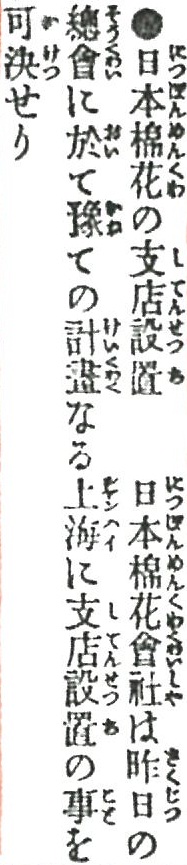 ●日本棉花の支店設置　日本棉花會社は昨日の
總會に於て豫ての計畫なる上海に支店設置の事を
可決せり